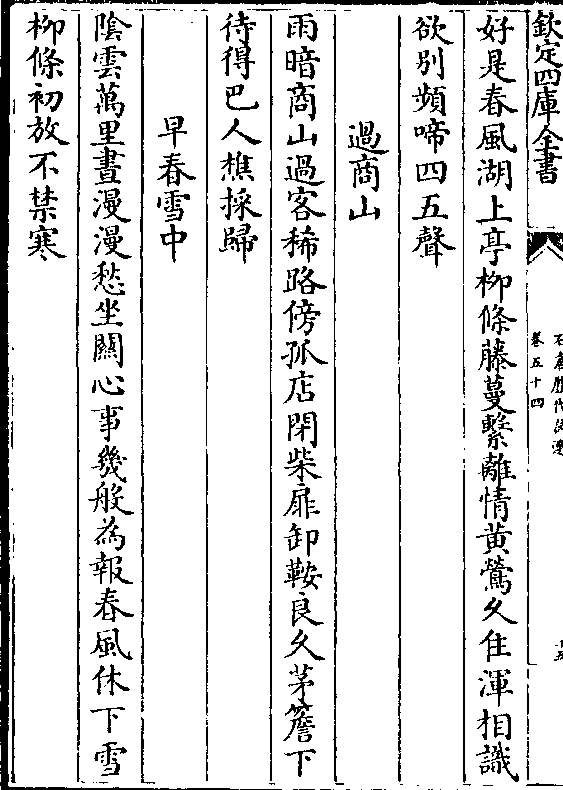 欽定四庫全書
卷五十四
好是春風湖上亭柳條藤蔓繫離情黃鶯久住渾相識
欲別頻啼四五聲
過商山
雨暗商山過客稀路傍孤店閉柴扉卸鞍良久茅簷下
待得巴人樵採歸
早春雪中
陰雲萬里晝漫漫愁坐關心事幾般為報春風休下雪
柳條初放不禁寒